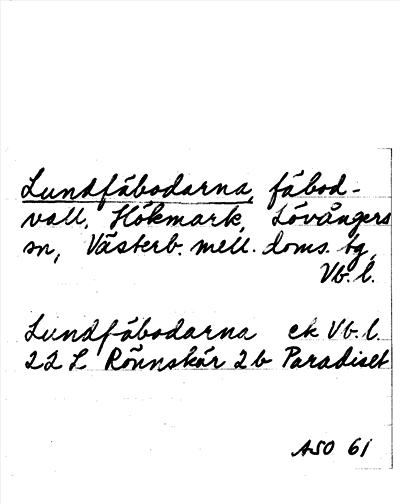 Lundfäbodarna, fäbod-
vall, Hökmark, Lövångers
sn, Västerb. mell. doms. tg,
Vb. l.
Lundfäbodarna ek Vb. l.
22 L Rönnskär 2 b Paradiset
ASO 61